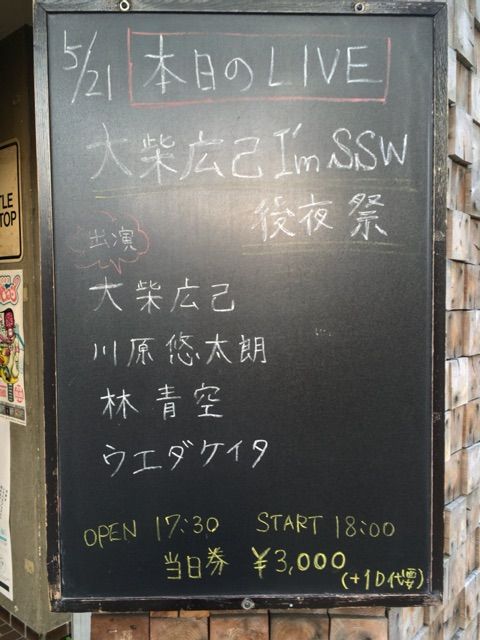 5/21 本日のLIVE
大柴広己 I'm SSW
後夜祭
出演
大柴広己
川原悠太朗
林青空
ウエダケイタ
OPEN 17:30 START 18:00
当日券 ¥3,000
(+1D代要)
TLE
TOP